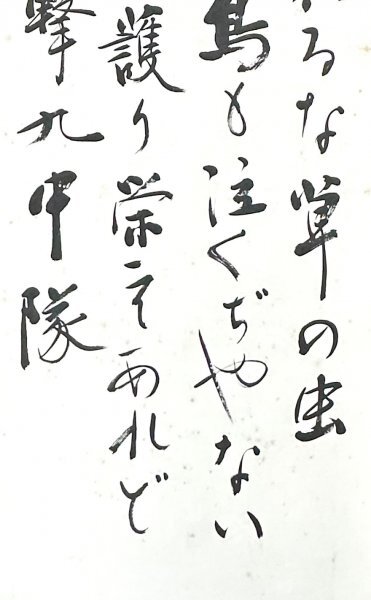 るな草の虫
鳥も泣くぢやない
護り栄えあれど
撃九中隊